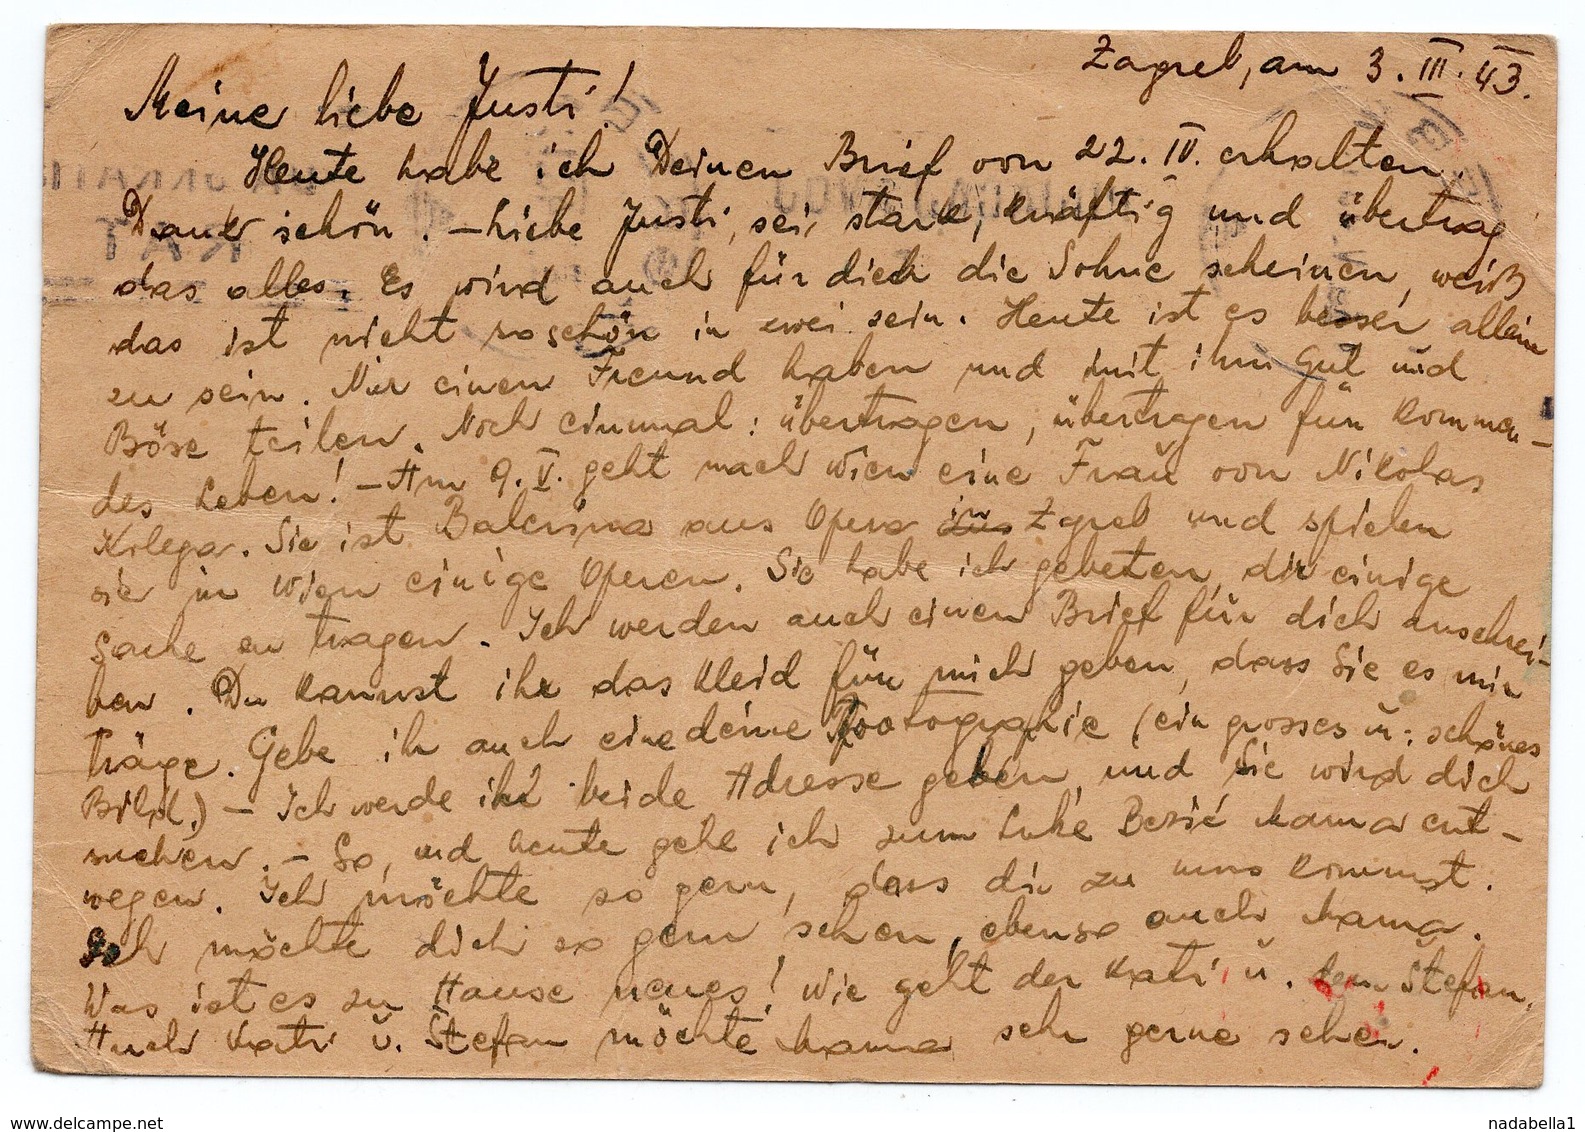 Zagreb, am 3. III. 43.
Meine liebe Justi!
Heute habe ich Deinen Brief von 22. IV. erhalten.
Dank schön. – Liebe Justi, sei stark, kräftig und übertrag
das alles. Es wird auch für dich die Sohne scheinen, weiß
das ist nicht so schön in zwei sein. Heute ist es besser allein
zu sein. Nur einen Freund haben und mit ihm Gut und
Böse teilen. Noch einmal: übertragen, übertragen für kommen-
des Leben! – Am 9. V. geht nach Wien eine Frau von Nikolas
Kolega. Sie ist Balerina aus Opera in Zgreb und spielen
sie in Wien einige Operen. Sie habe ich gebeten, dir einige
Sache zu tragen. Ich werden auch einen Brief für dich anschrei-
ben. Du kannst ihr das Kleid für mich geben, dass Sie es mir
träge. Gebe ihr auch eine deine Footographie (ein grosses u. schönes
Bild.) – Ich werde ihr beide Adresse geben, und Sie wird dich
suchen. – So, und heute gehe ich zum Luke Bezić Mama ent-
wegen. Ich möchte so gern, dass du zu uns kommst.
Ich möchte dich so gern sehen, ebenso auch Mama.
Was ist es zu Hause neues! Wie geht der Kati u. dem Štefan.
Auch Kati u. Štefan möchte Mama sehr gerne sehen.
www.delcampe.net
nadabella1